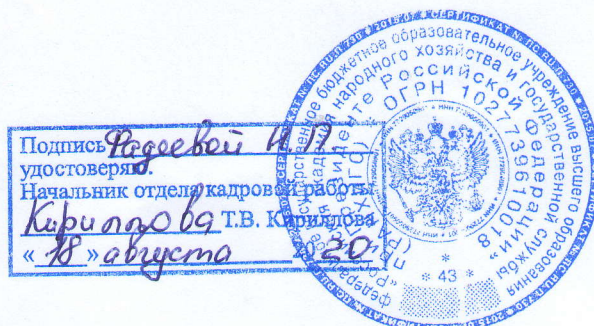 Подпись Фадеевой И.П.
удостоверяю.
Начальник отдела кадровой работы
Кириллова Т.В. Кириллова
«18» августа 20
федеральное государственное бюджетное образовательное учреждение высшего образования
"Российская академия народного хозяйства и государственной службы
при Президенте Российской Федерации"
(РАНХиГС) * ОГРН 1027739610018
* 43 *